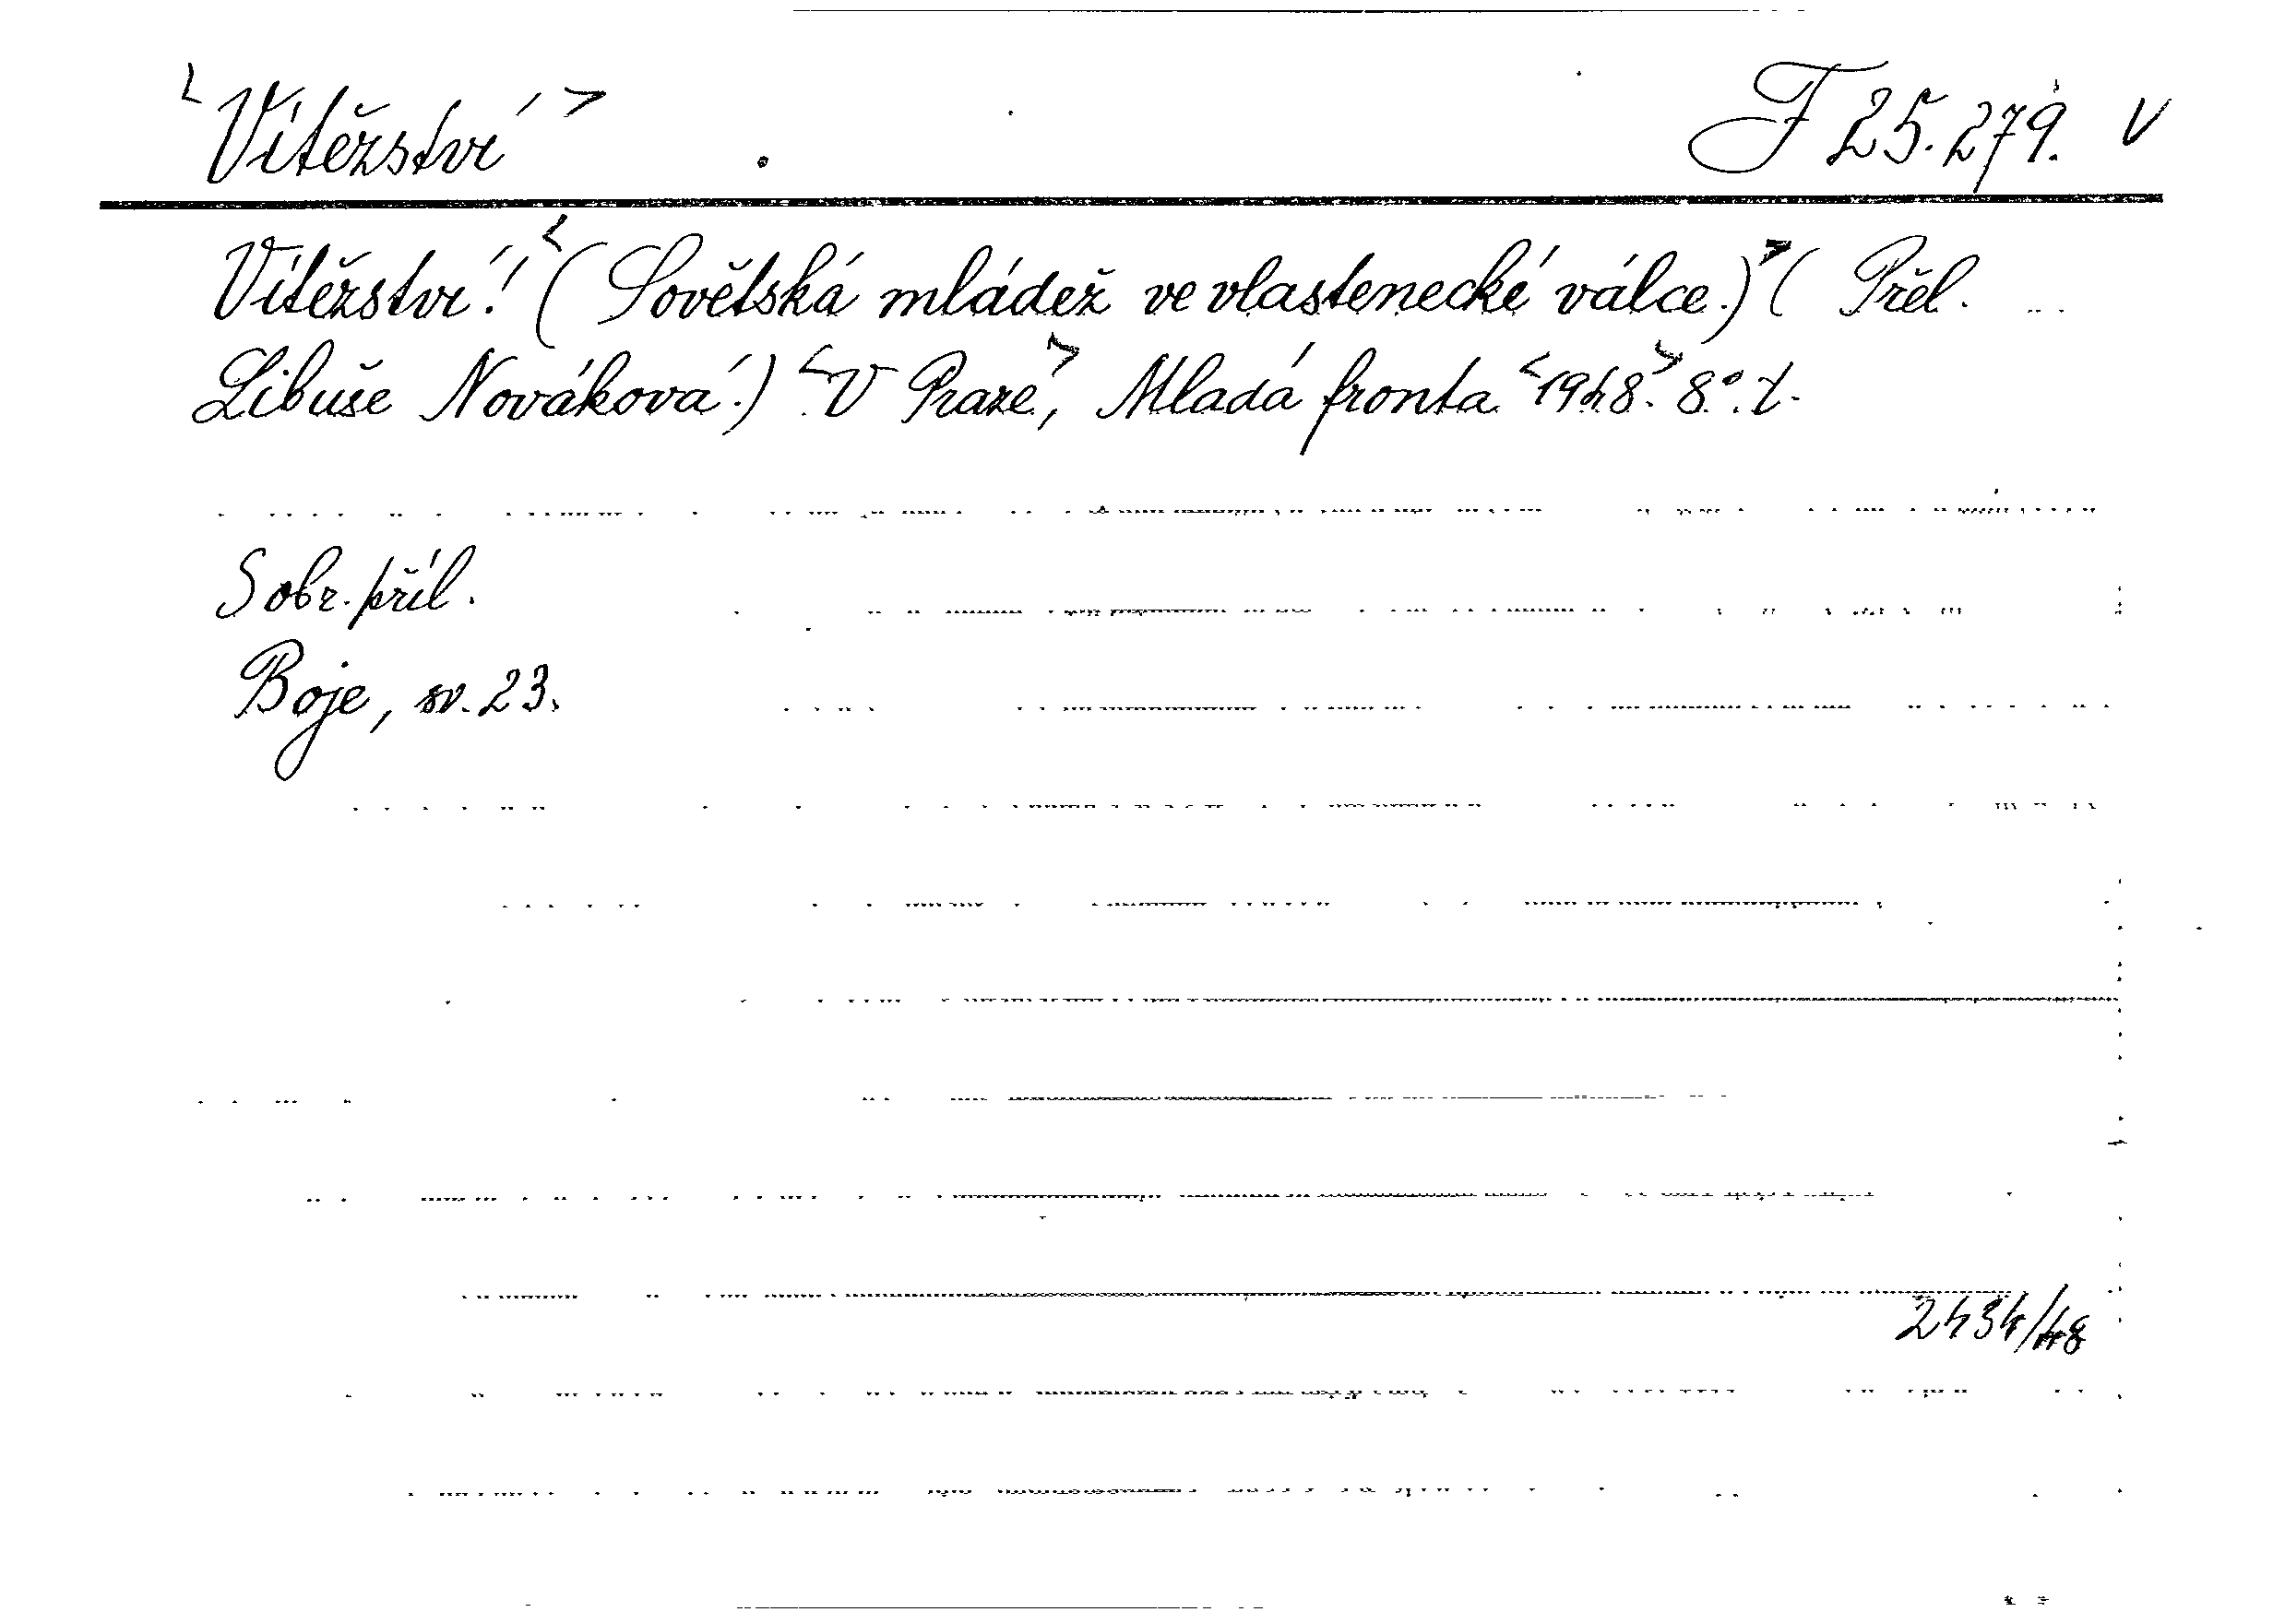 <Vítězství> F 25.279. V
Vítězství! <(Sovětská mládež ve vlastenecké válce.)> (Přel.
Libuše Nováková.) <V Praze>, Mladá fronta <1948>. 8°. t.
S obr. příl.
Boje, sv. 23.
2434/48